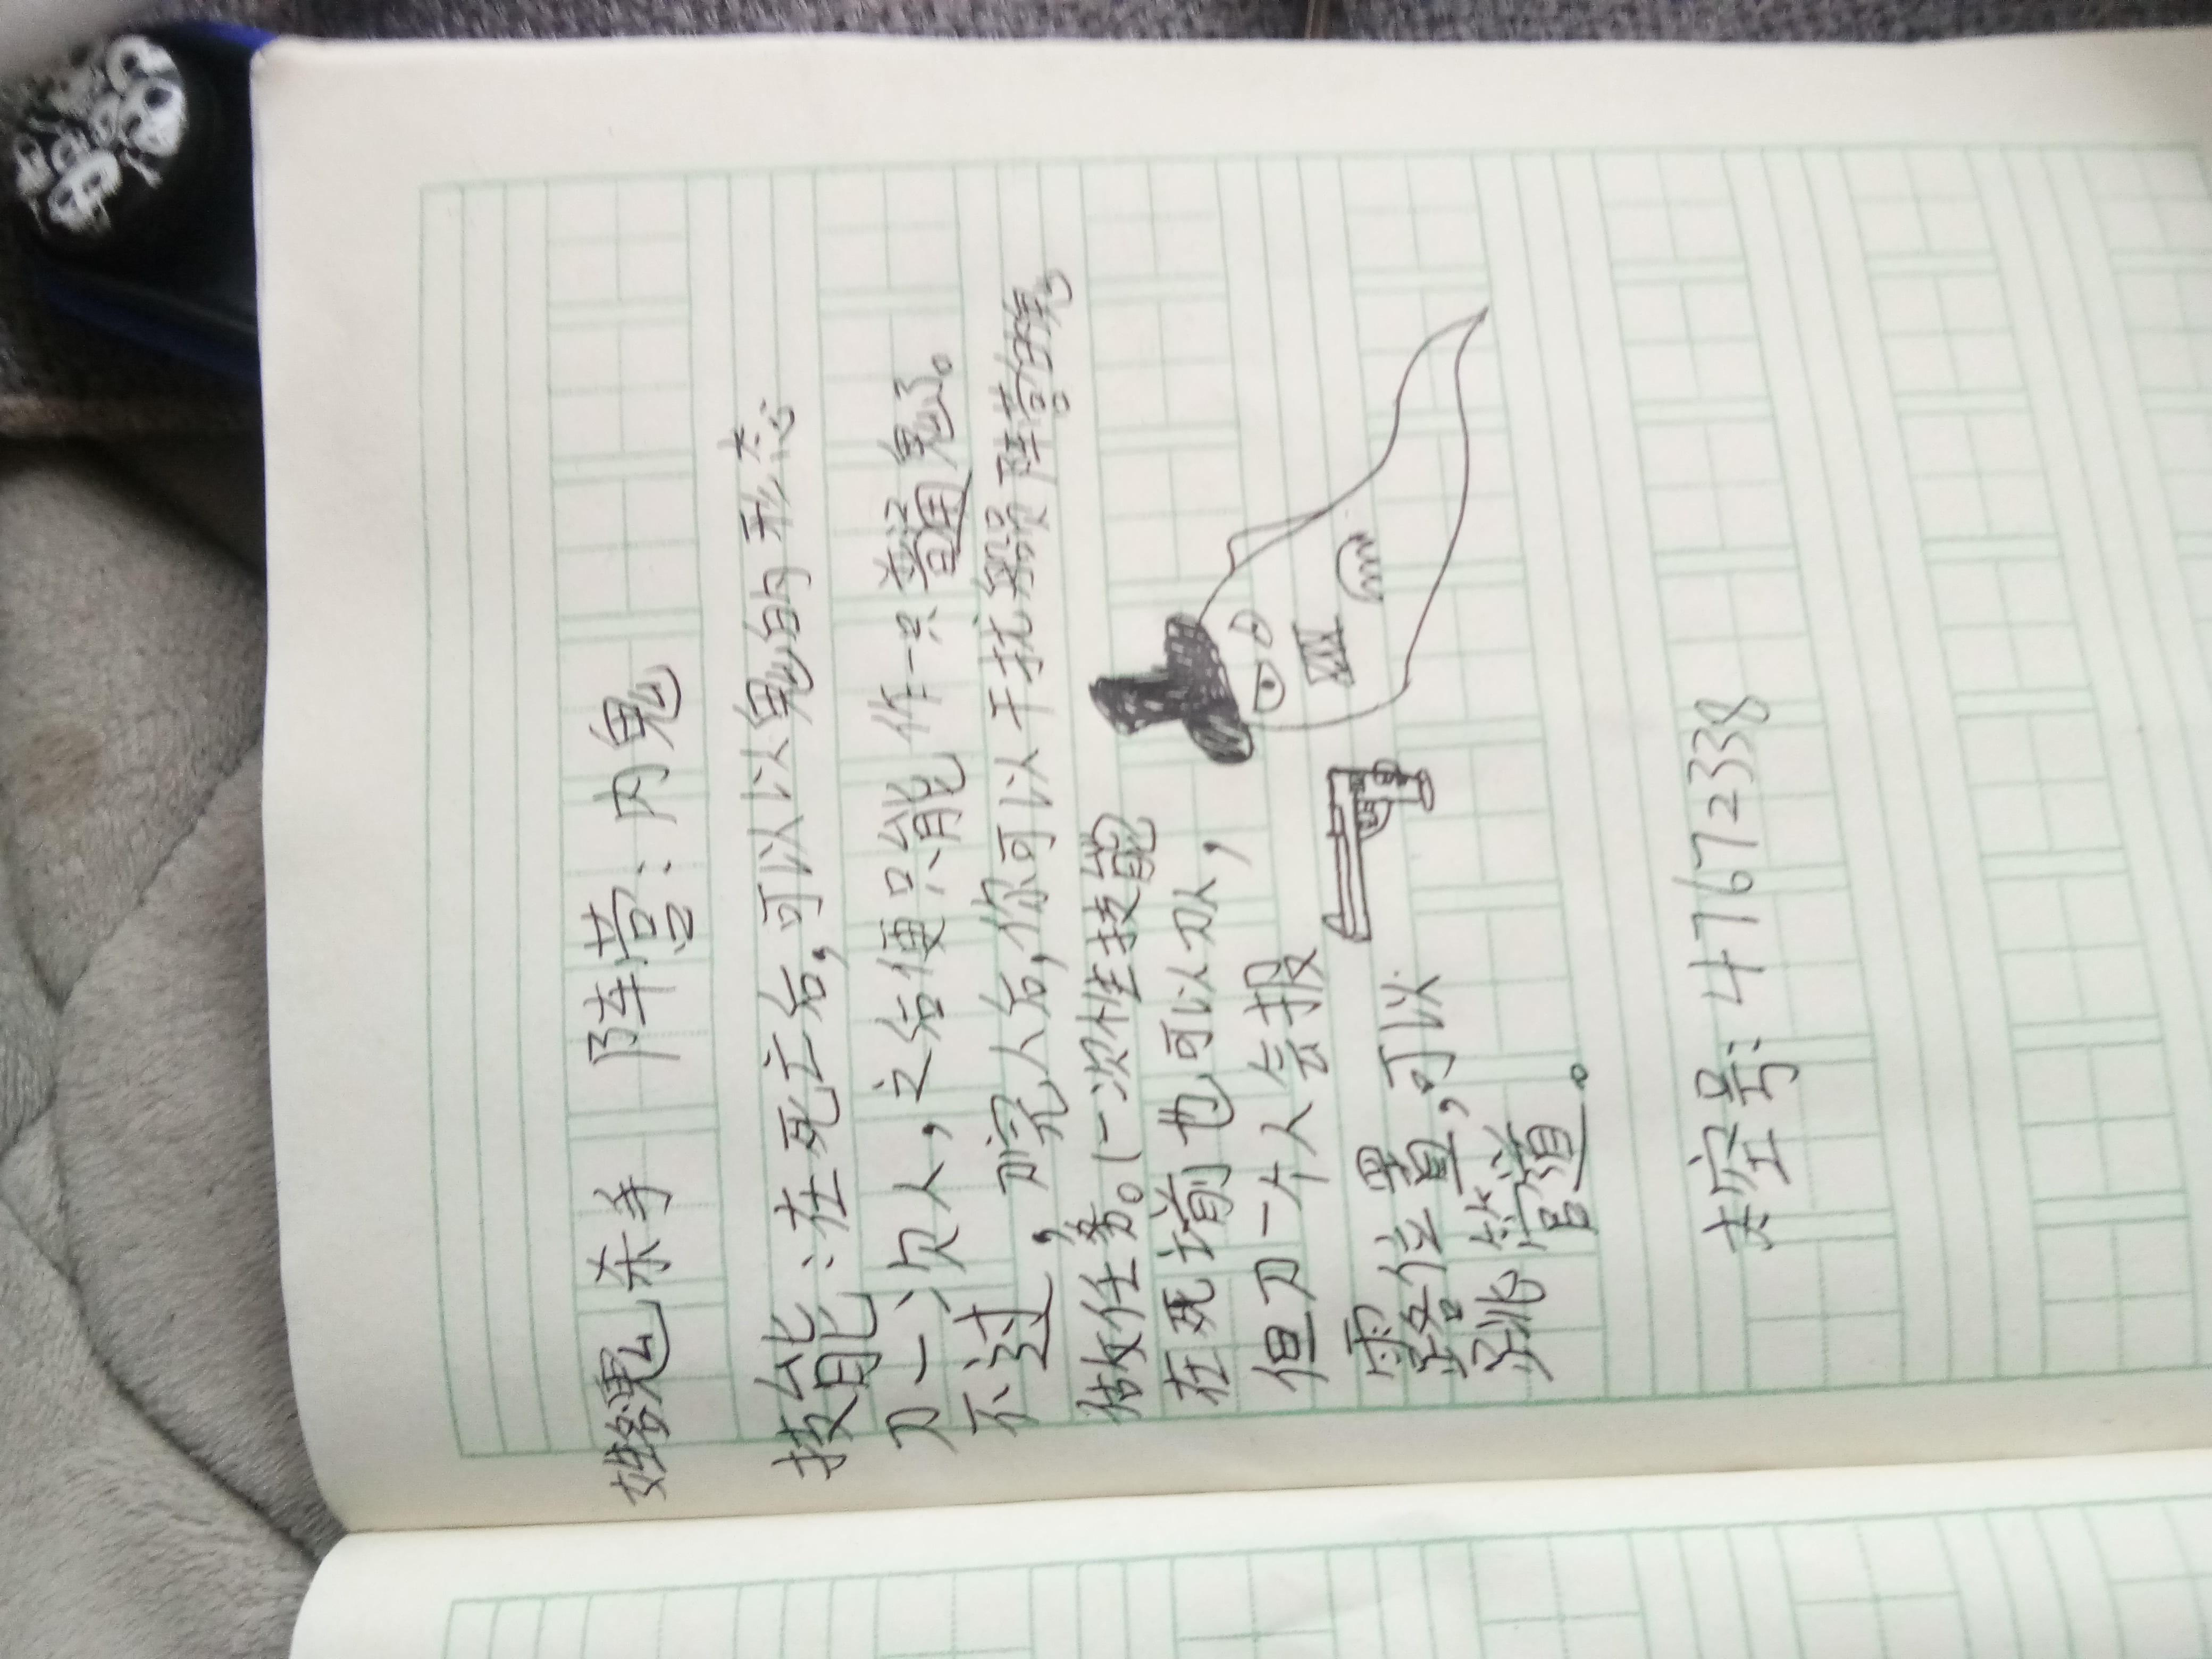 杀手 阵营：内鬼
技能：在死亡后，可以以鬼的形态
刀一次人，之后便只能作一只普通鬼了。
不过，完人后，你可以干扰船员阵营的
做任务。（一次性技能
在死前也可以刀人，
但刀一个人会报
露位置，可以
跳管道。
太空号：47672338